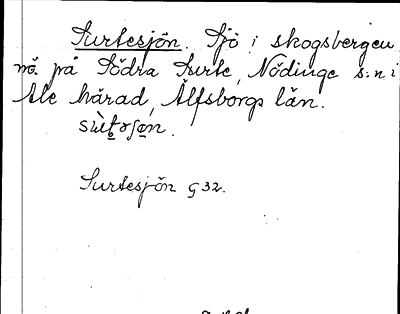 Surtesjön. Sjö i skogsbergen
nö. på Södra Surte, Nödinge s:n i
Ale härad, Älfsborgs län.
Surtesjön G 32.